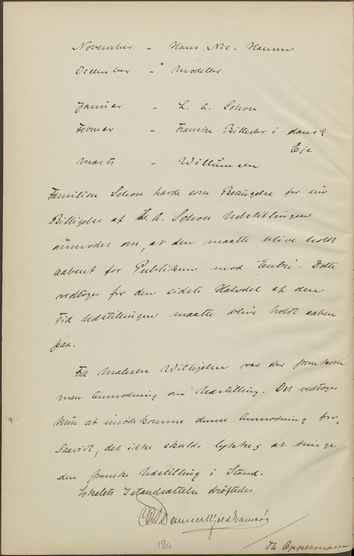 November – Hans Nic. Hansen
December – " Modeller
Januar – L. A. Schou
Februar – Franske Billeder i dansk
Eje
Marts – Willumsen
Familien Schou havde som Betingelse for sin
Billigelse af L. A. Schou Udstillingen
anmodet om, at den maatte blive holdt
aabent for Publikum mod Entré. Dette
vedtoges for den sidste Halvdel af den
Tid Udstillingen maatte blive holdt aaben
paa.
Fra Maleren Wilhjelm var der fremkom
men Anmodning om Udstilling. Det vedtoges
kun at imødekomme denne Anmodning for-
saavidt, det ikke skulde lykkes at bringe
den franske Udstilling i Stand.
Lokalets Istandsættelse drøftedes.
Th. Oppermann